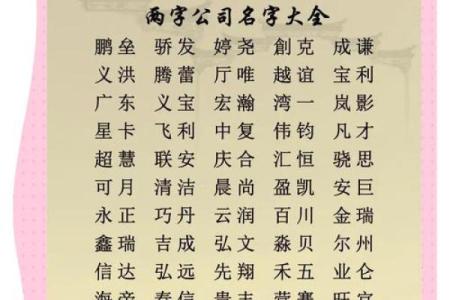 两字公司名字大全
鹏垒 骄发 婷尧 創克 成谦
义洪 腾蕾 厅唯 越谊 宝利
广东 义宝 宏瀚 湾一 岚影
星卡 飞利 中复 伟钧 凡才
超慧 联安 庆合 汇恒 骁思
可月 清洁 晨尚 盈凯 安巨
永正 巧丹 云润 百川 金瑞
鑫瑞 吉成 弘文 淼贝 尔州
信达 弘远 先翔 禾五 仑
海帝 泰信 贵丰 营赛 旺宫